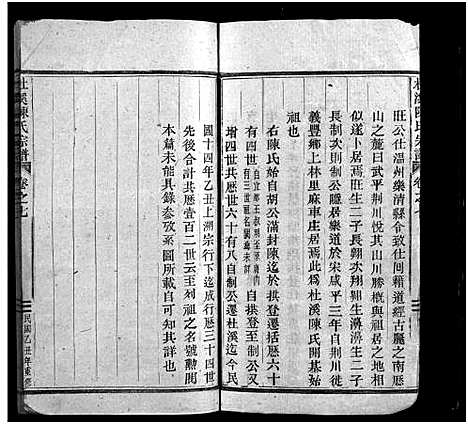 杜溪陳氏宗譜
卷之七
旺公仕溫州樂清縣令致仕間籍道經古麗之南歷
山之麓曰武平荆川悅其山川勝概與祖居之地相
似遂卜居焉旺生二子長翱次翔翱生濟濟生二子
長制公隱居樂道於宋咸平三年自荆川徙
義豐鄉上林里麻車庄居焉此爲杜溪陳氏開基始
祖也
陳氏始自胡公滿封陳迄於拱登遷括歷六十
有四世 自拱登至制公又
增四世共歷世六十有八自制公遷杜溪迄今民
國十四年乙丑上溯宗行下迄成行歷三十四世
前後合計共歷壹百二世以上四公之名號勳閥
本篇未能具錄參攷系圖自可知其詳也
杜溪陳氏宗譜
卷之七
民國乙丑年重修